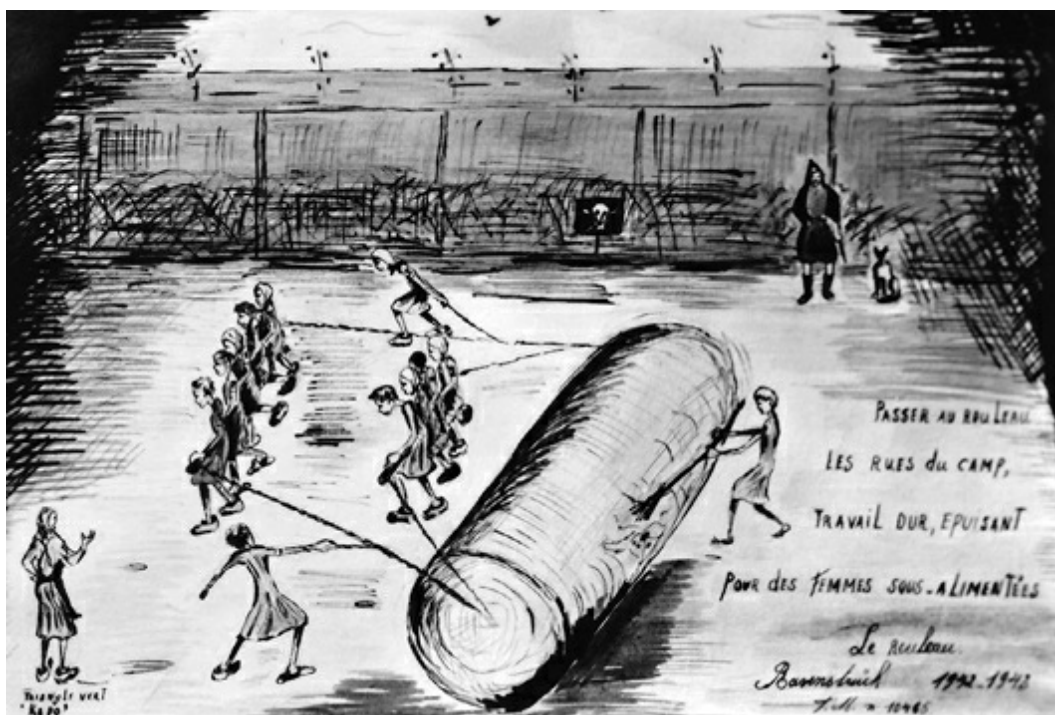 PASSER AU ROULEAU
LES RUES du CAMP,
TRAVAIL DUR, EPUISANT
POUR DES FEMMES SOUS-ALIMENTÉES
Le rouleau
1942-1943
TRIANGLE VERT
"KAPO"